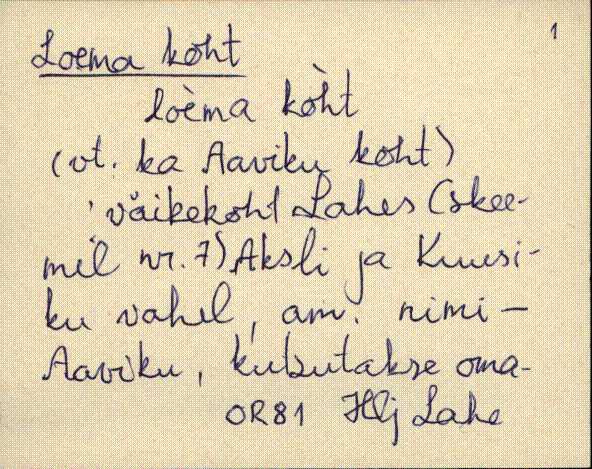 1
Loema koht
loèma kòht
(vt. ka Aaviku koht)
'väikekoht Lahes (skee-
mil nr. 7) Aksli ja Kuusi-
ku vahel, am. nimi –
Aaviku, kutsutakse oma-
OR81 Hlj Lahe